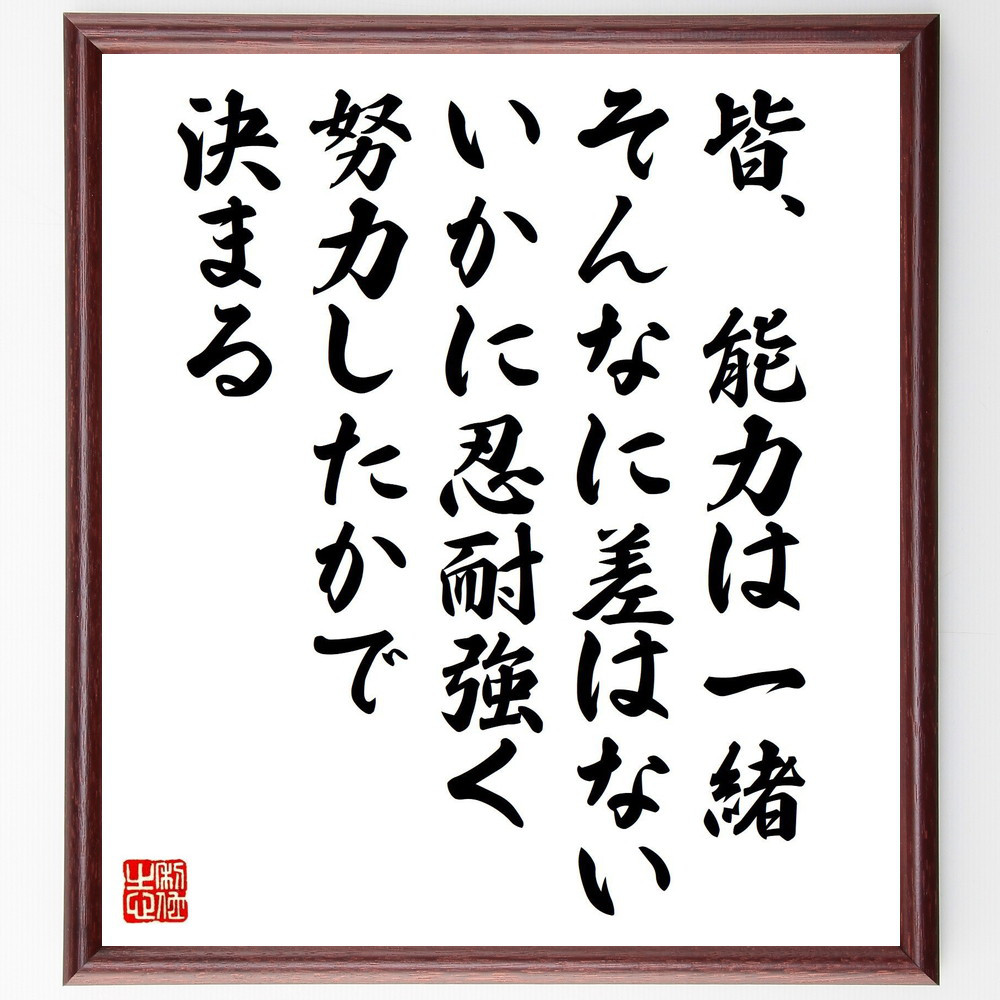 皆、能力は一緒
そんなに差はない
いかに忍耐強く
努力したかで
決まる